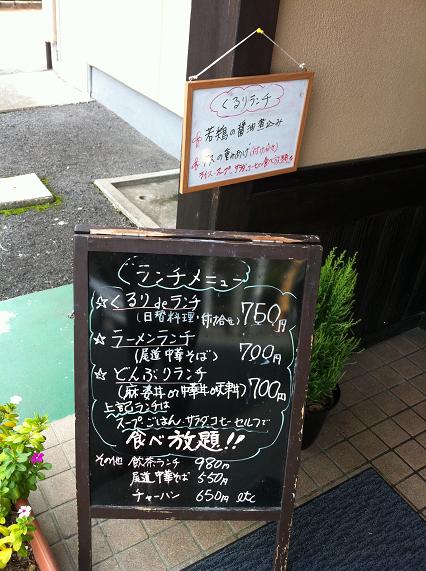 くるりランチ
若鶏の醤油煮込み
ライス、スープ、サラダ、コーヒー
ランチメニュー
☆くるりdeランチ 750円
(日替料理・付け合せ)
☆ラーメンランチ 700円
(尾道中華そば)
☆どんぶりランチ 700円
(麻婆丼or中華丼or天津丼)
上記ランチは
スープ、ごはん、サラダ、コーヒーセルフで
食べ放題!!
その他 飲茶ランチ 980円
尾道中華そば 550円
チャーハン 650円 etc